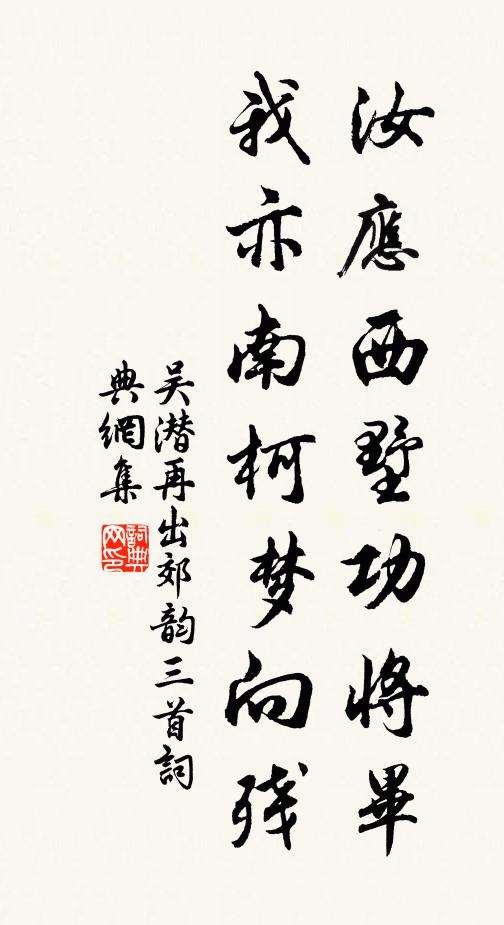 汝應西墅功將畢
我亦南柯梦向残
吴潜再出郊韵三首詞
典網集
詞典网印